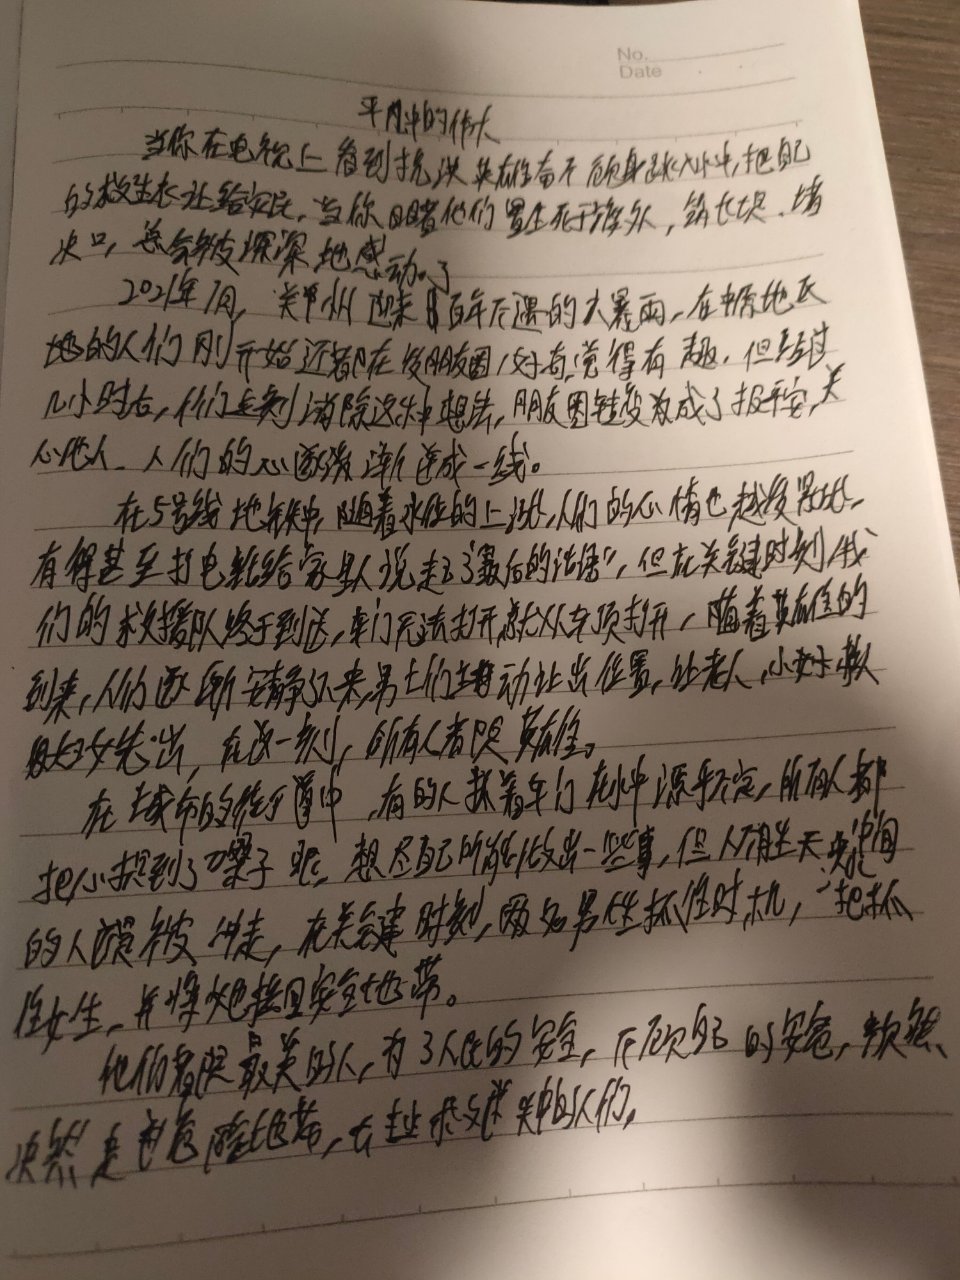 No.
Date
平凡中的伟大
当你在电视上看到抗洪英雄奋不顾身跳入水中,把自己
的救生衣让给灾民,当你目睹他们置生死于度外,筑长堤、堵
决口,总会被深深地感动。了
2021年7月,郑州迎来百年不遇的大暴雨,在中原地区
地的人们刚开始还都在发朋友圈,觉得有趣,但经过
几小时后,他们立刻消除这种想法,朋友圈变成了报平安,关
心他人。人们的心逐渐连成一线。
在5号线地铁中,随着水位的上涨,人们的心情也越发
有得甚至打电话给家人说起了"最后的话语",但在关键时刻,我
们的救援队终于到达,车门无法打开就从车顶打开,随着英雄的
到来,人们逐渐安静下来,男士们主动让出位置,让老人,小孩
妇女先出,在这一刻,所有人都是英雄。
在城市的街道中,有的人抓着车门在水中漂乎不定,所有人都
把心提到了嗓子眼。想尽自己所能做出一些事,但
的人被冲走,在关键时刻,两名男生抓住时机,一把抓
住女生,并将她拉回安全地带。
他们都是最美的人,为了人民的安全,不顾自己的安危,毅然、
决然走到危险地带,去拯救危难中的人们。